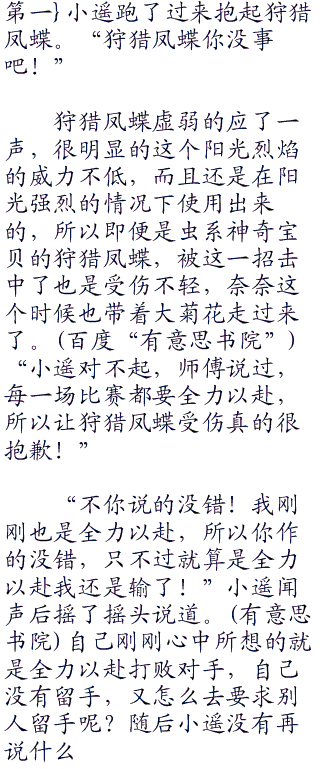 第一}小遥跑了过来抱起狩猎
凤蝶。“狩猎凤蝶你没事
吧！”
狩猎凤蝶虚弱的应了一
声，很明显的这个阳光烈焰
的威力不低，而且还是在阳
光强烈的情况下使用出来
的，所以即便是虫系神奇宝
贝的狩猎凤蝶，被这一招击
中了也是受伤不轻，奈奈这
个时候也带着大菊花走过来
了。(百度“有意思书院”)
“小遥对不起，师傅说过，
每一场比赛都要全力以赴，
所以让狩猎凤蝶受伤真的很
抱歉！”
“不你说的没错！我刚
刚也是全力以赴，所以你作
的没错，只不过就算是全力
以赴我还是输了！”小遥闻
声后摇了摇头说道。(有意思
书院)自己刚刚心中所想的就
是全力以赴打败对手，自己
没有留手，又怎么去要求别
人留手呢？随后小遥没有再
说什么